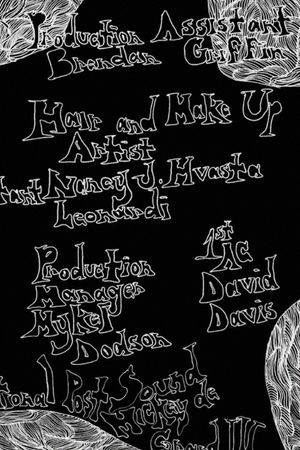 Production Assistant
Brendan Griffin
Hair and Make Up
Artist
Nancy J. Hvasta
Leonardi
Production
Manager
Mykel
Dodson
1st
AC
David
Davis
Post Sound
Mickey de
Grand IV